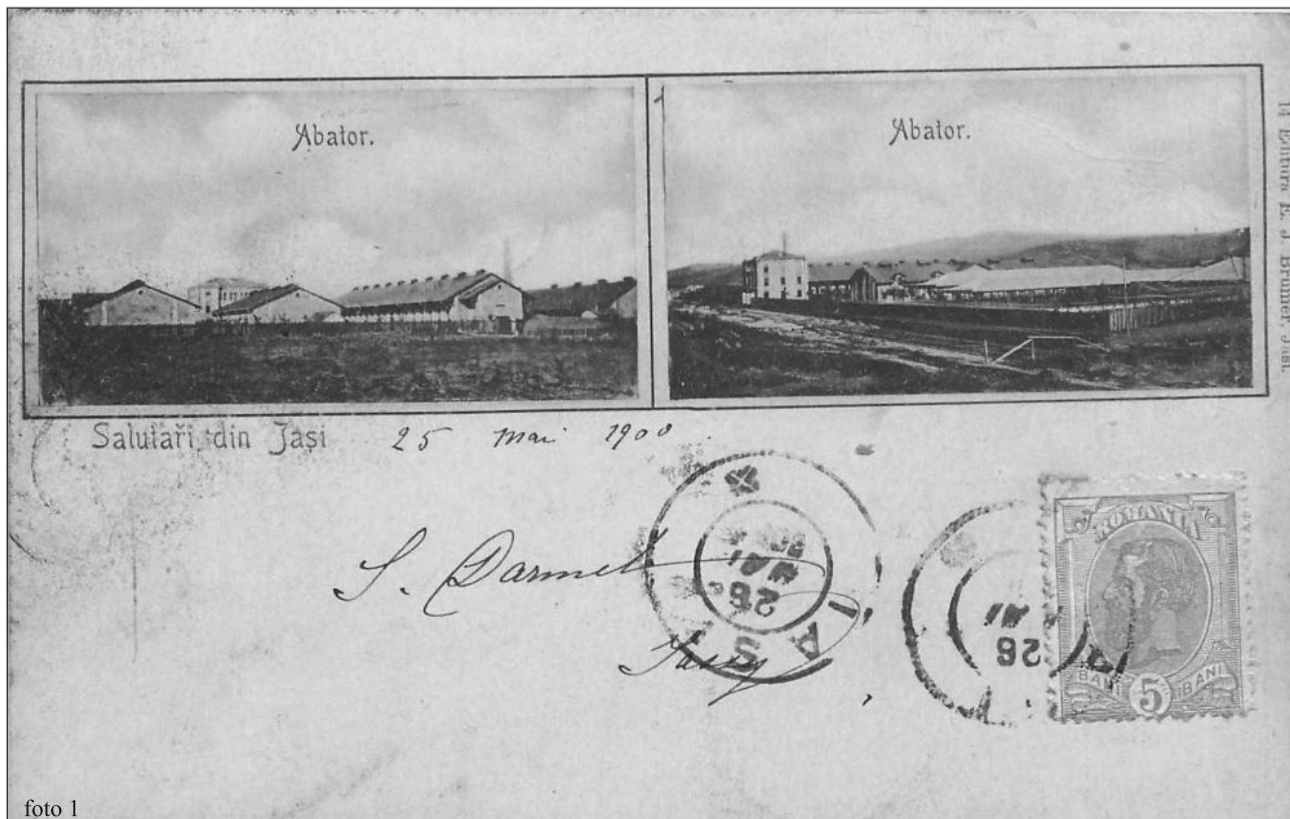 Abator.
Abator.
14 Editura E. J. Brunner, Jasi.
Salutări din Jaşi 25 mai 1900
S. Darmet
Jassy
IASI
26
MAI
26
MAI
ROMANIA
BANI 5 BANI
foto 1